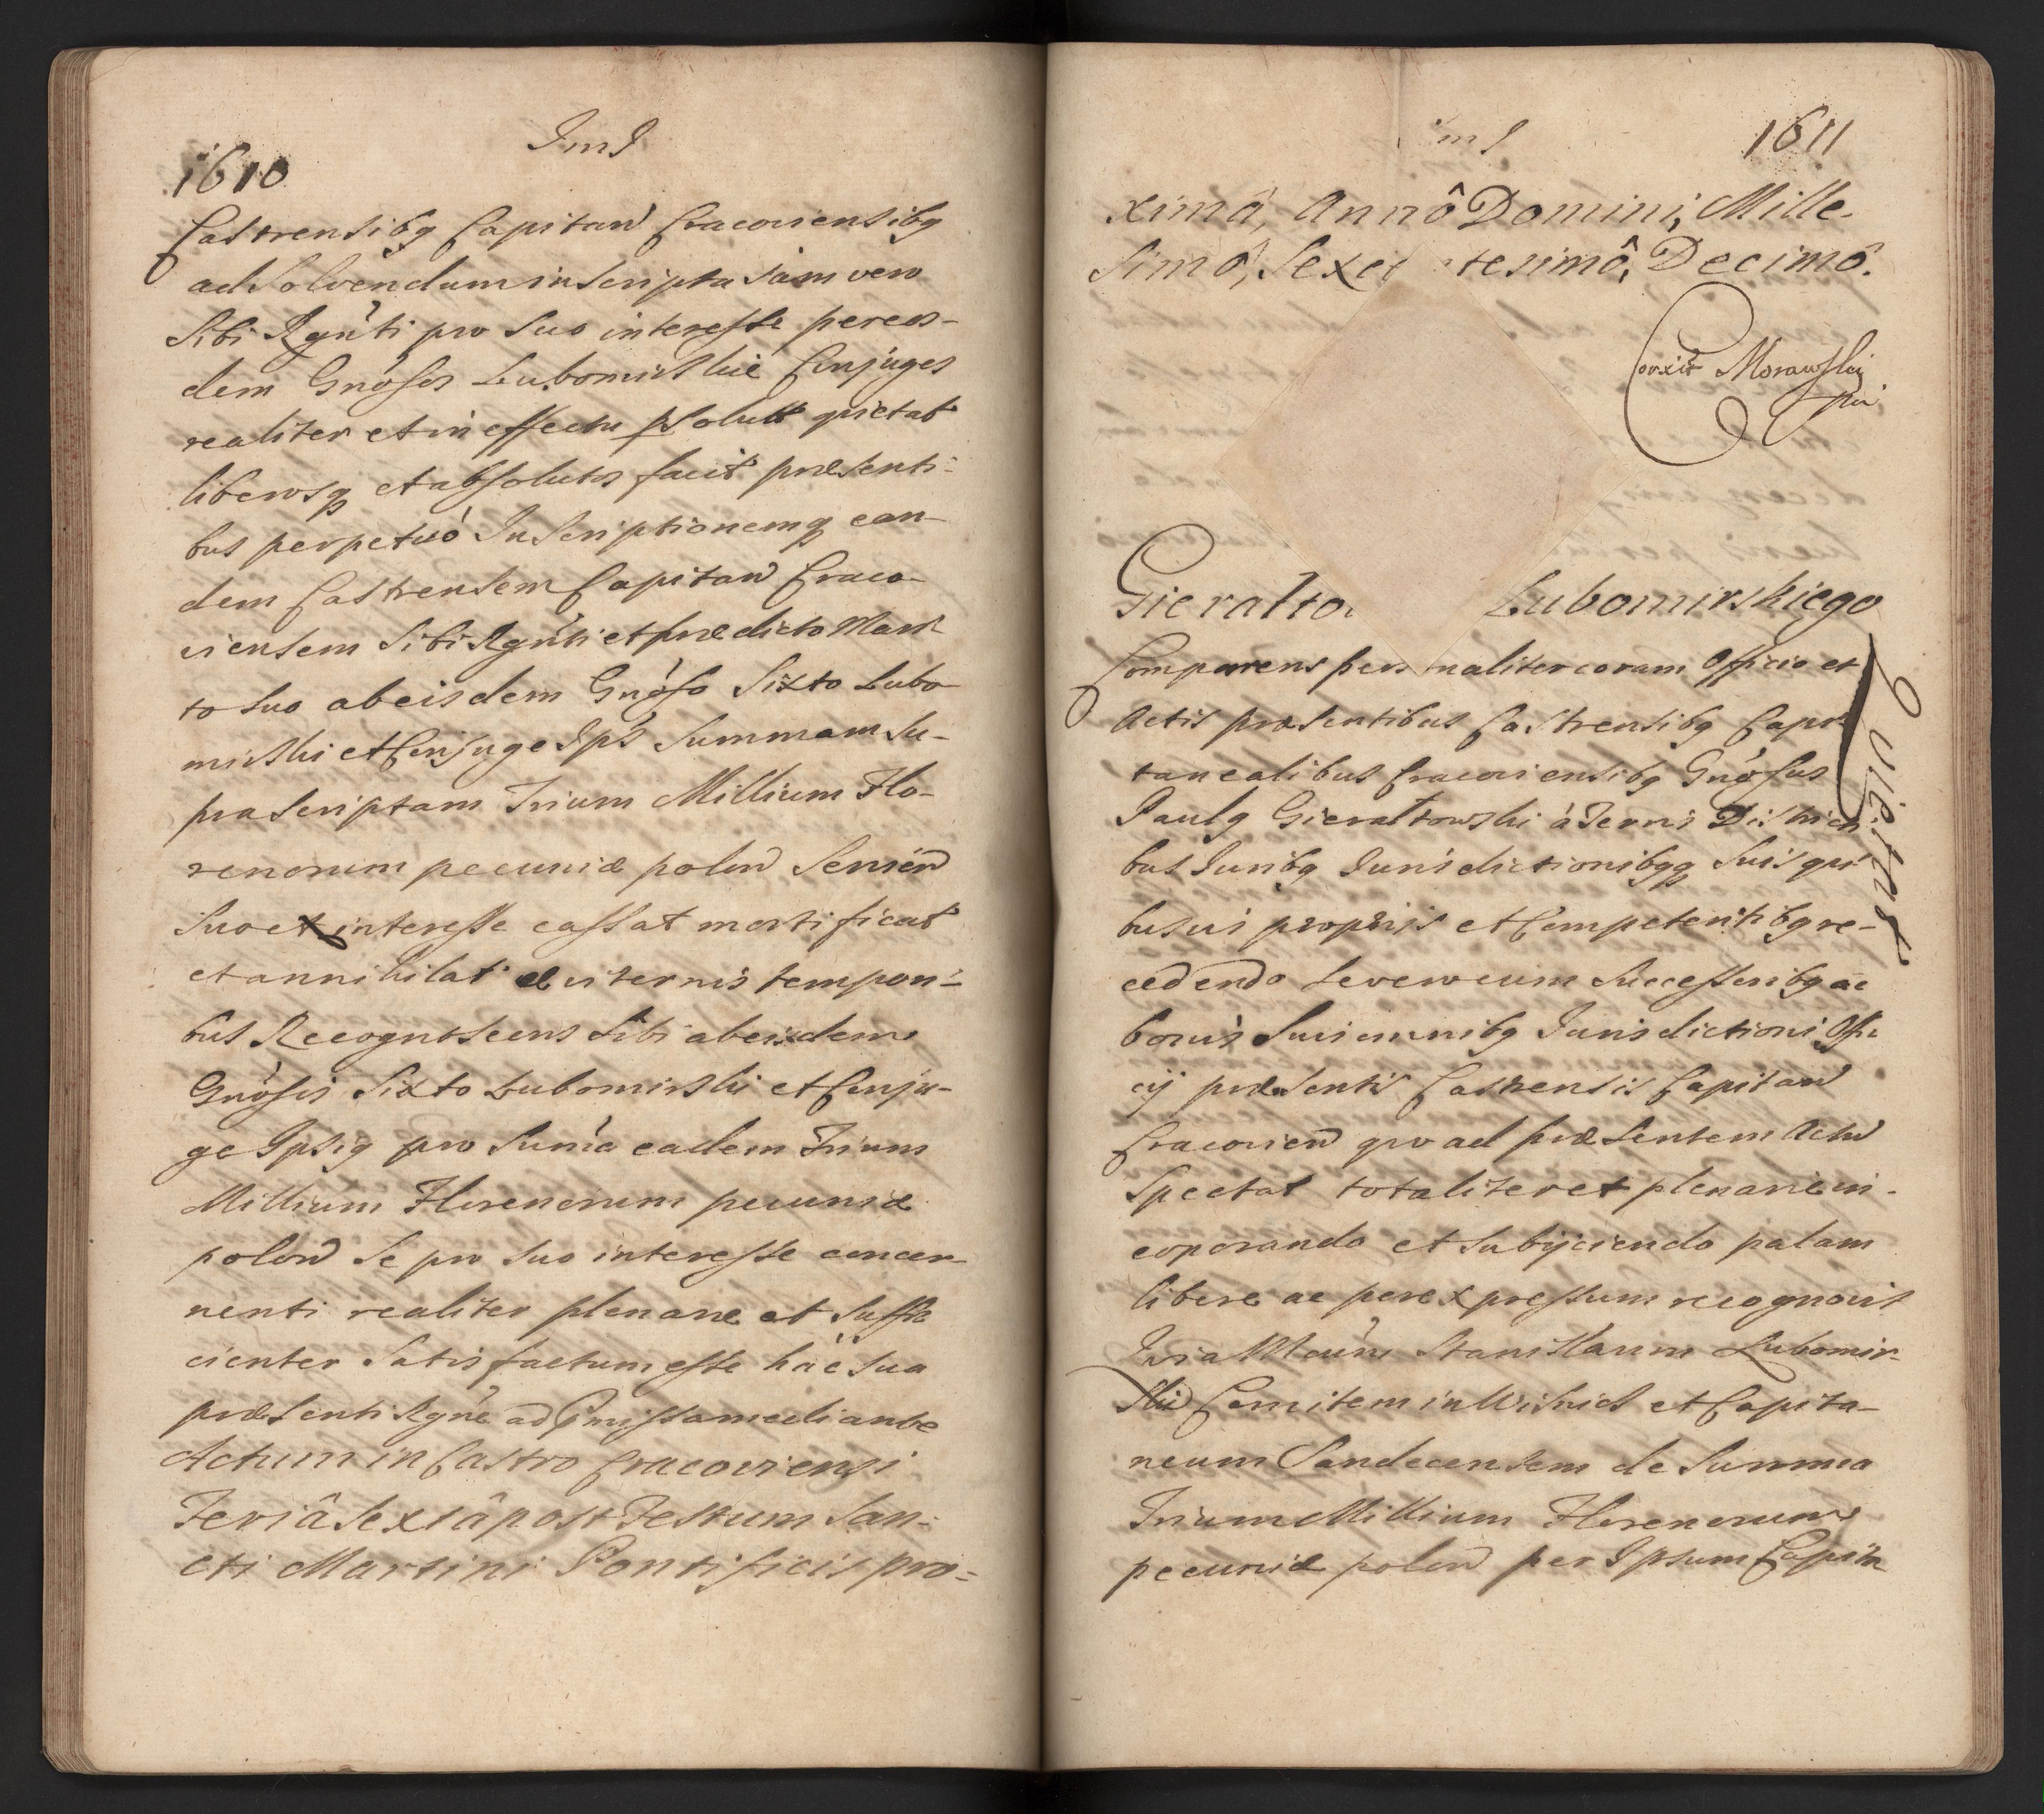 1610
ImJ
Castrensibq Capitan Cracoviensibq
ad Solvendum inscripta jam vero
Sibi Rgnti pro Suo interesse pereos-
dem Gnosos Lubomirskie Conjuges
realiter et in effectu psolut quietat
liberosq et absolutos facit præsenti-
bus perpetuò Inscriptionemq ean-
dem Castrensem Capitan Craco-
viensem Sibi Rgnti et prædicto Mari-
to Suo ab eisdem Gnoso Sixto Lubo-
mirski et Conjuge Ips Summam Su-
prascriptam Trium Millium Flo-
renorum pecuniæ polon
Suo et interesse cassat mortificat
et annihilat æviternis tempori-
bus Recognoscens Sibi ab eisdem
Gnosis Sixto Lubomirski et Conju-
ge Ipsiq pro Suma eadem Trium
Millium Florenorum pecuniæ
polon Se pro Suo interesse concer-
nenti realiter plenarie et Suffi
cienter Satisfactum esse hac Sua
præsenti Rgne ad Pmissa mediante
Actum in Castro Cracoviensi
Feriâ Sextâ post Festum San-
cti Martini Pontificis pro-
ImJ
1611
ximâ, Annô Domini, Mille-
Simô, Sexce tesimô, Decimô.
Corxit Morawski
pm
Gieralto Lubomirskiego
Quietat
Comparens pers naliter coram Officio et
Actis præsentibus Castrensibq Capi
tanealibus Cracoviensibq Gnosus
Paulq Gierałtowski à Terris Districti
bus Juribq Jurisdictionibqq Suis qui
busvis proprijs et Competentibq re-
cedendo Severocum Successoribq ac
bonis Suis omnibq Jurisdictioni Offi
cij præsentis Castrensis Capitan
Cracovien quo ad præsentem Actu
Spectat totaliter et plenarie in-
coporando et Subijciendo palam
libere ac per expressum recognovit
Quia Mcum Stanislaum Lubomir-
ski Comitem in Wisnicz et Capita-
neum Sandecensem de Summa
Trium Millium Florenorum
pecuniæ polon per Ipsum Capita